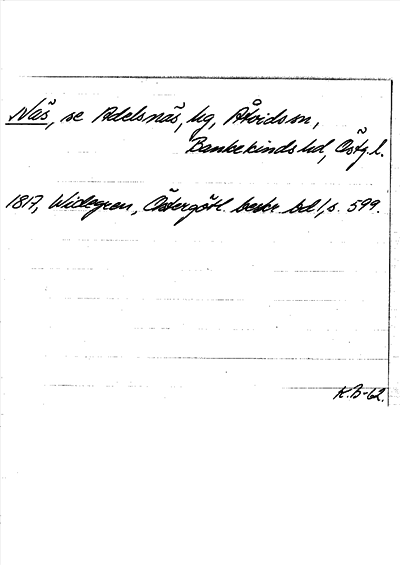 Näs, se Adelsnäs, hg, Åtvids sn,
Bankekinds hd, Östg.l.
1817, Widegren, Östergötl. beskr. bd 1, s. 599.
K.B-62.